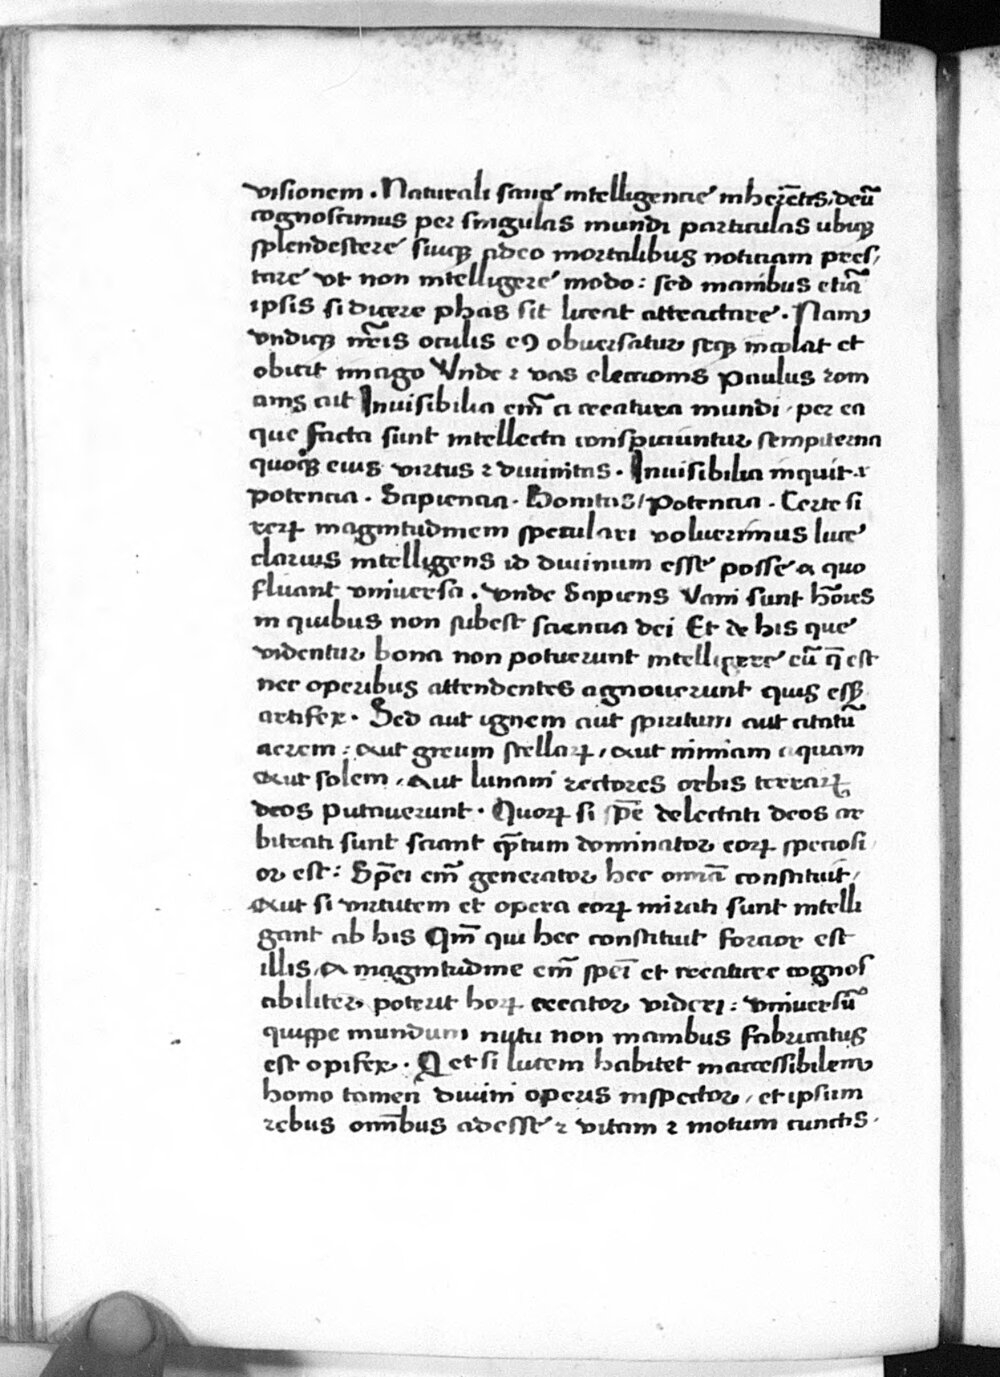 visionem . Naturali sane intelligencie inherẽtes, deũ
cognoscimus per singulas mundi particulas ubiqꝫ
splendescere suiqꝫ adeo mortalibus noticiam pres,
tare vt non intelligere modo : sed manibus etiã
ipsis si dicere phas sit liceat attractare . Nam
vndiqꝫ nr̃is oculis eꝯ obuersatur seqꝫ incolat et
obicit imago Vnde ⁊ vas eleccionis Paulus rom
anis ait Inuisibilia em̃ a creatura mundi , per ea
que facta sunt intellecta conspiciuntur sempiterna
quoqꝫ eius virtus ⁊ diuinitas . Inuisibilia inquit .
potencia . Sapiencia . Bonitas / Potencia . Certe si
reꝝ magnitudinem speculari voluerimus luce
clarius intelligens id diuinum esse posse a quo
fluant vniuersa . vnde Sapiens Vani sunt hõies
in quibus non subest sciencia dei Et de his que
videntur bona non potuerunt intelligere eũ q̃ est
nec operibus attendentes agnouerunt quis esꝫ
artifex . Sed aut ignem aut spiritum aut citatũ
aerem : Aut girum stellaꝝ , Aut nimiam aquam
Aut solem , Aut lunam rectores orbis terraꝝ
deos putauerunt . Quoꝝ si spẽ delectati deos ar
bitrati sunt sciant q̃tum dominator eoꝝ speciosi
or est : Spẽi em̃ generator hec omĩa constituit ,
Aut si virtutem et opera eoꝝ mirati sunt intelli
gant ab his Qm̃ qui hec constituit forcior est
illis , A magnitudine em̃ spẽi et creature cognos
cabiliter poterit hoꝝ creator videri : vniuersũ
quippe mundum nutu non manibus fabricatus
est opifex . Q et si lucem habitet inaccessibilem
homo tamen diuini operis inspector , et ipsum
rebus om̃bus adesse ⁊ vitam ⁊ motum cunctis .